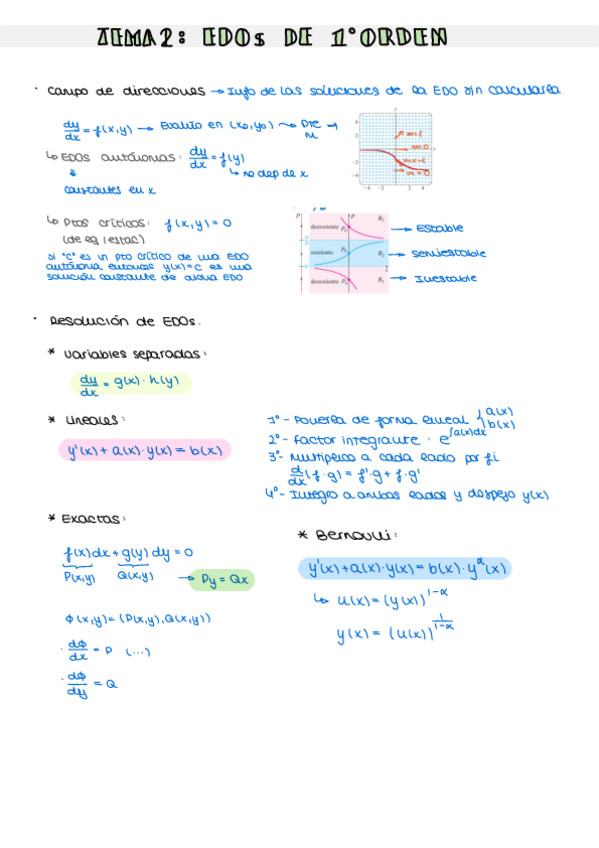 TEMA 2: EDOs DE 1º ORDEN
· Campo de direcciones → Info de las soluciones de la EDO sin calcularla
dy/dx = f(x,y) → Evalúo en (x0,y0) → Dte → m
↳ EDOs autónomas: dy/dx = f(y)
↳ no dep de x
constantes en x
↳ Ptos críticos: f(x,y) = 0
(de eq/estac)
si "c" es un pto crítico de una EDO
autónoma entonces y(x)=c es una
solución constante de dicha EDO
decreciente P1 R3
creciente P2 R2
decreciente P3 R1
→ Estable
→ Semiestable
→ Inestable
· Resolución de EDOs.
* Variables separadas:
dy/dx = g(x) · h(y)
* Lineales:
y'(x) + a(x)·y(x) = b(x)
1º - Ponerla de forma lineal { a(x) b(x)
2º - Factor integrante: e^∫a(x)dx
3º - Multiplico a cada lado por f.i
d/dx (f·g) = f'·g + f·g'
4º - Integro a ambos lados y despejo y(x)
* Exactas:
f(x)dx + g(y)dy = 0
P(x,y) Q(x,y) → Py = Qx
Φ(x,y) = (P(x,y), Q(x,y))
· dΦ/dx = P (...)
· dΦ/dy = Q
* Bernoulli:
y'(x) + a(x)·y(x) = b(x)·y^α(x)
↳ u(x) = (y(x))^1-α
y(x) = (u(x))^1/1-α